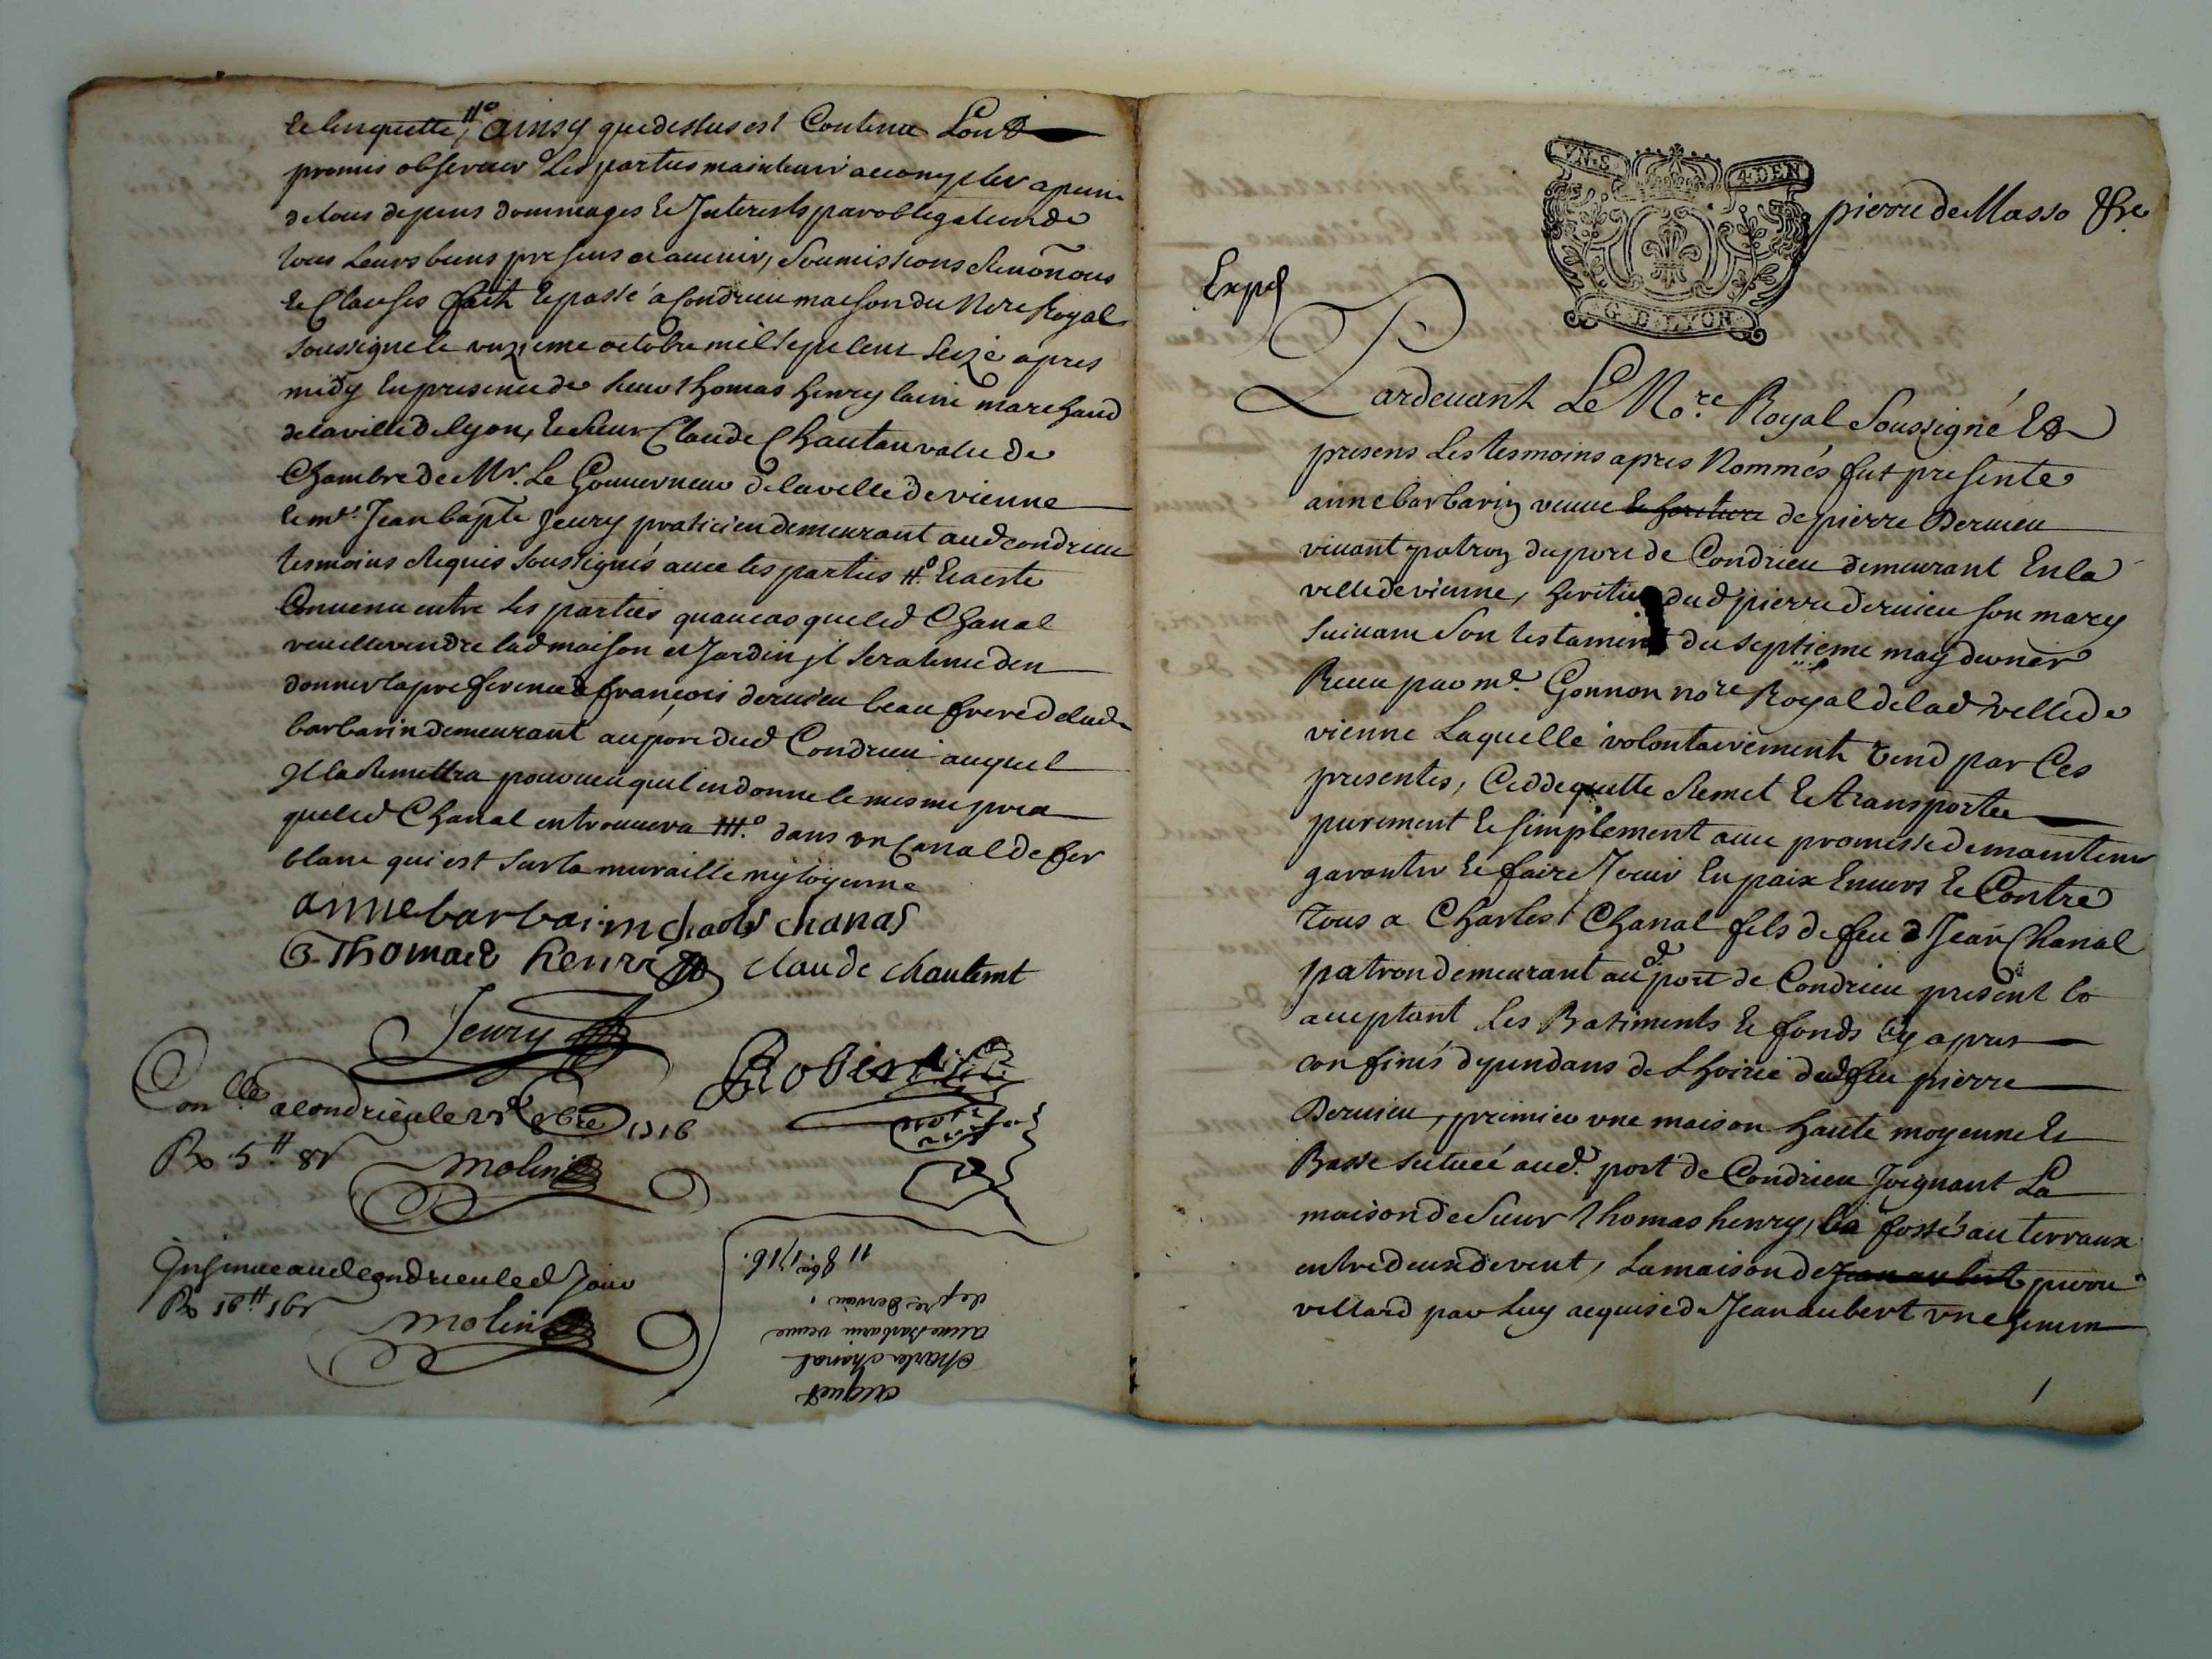 et linquette, #° ainsy que dessus est Contenu Lont
promis observer Les parties maintenir accomplir a peine
de tous depens dommages et Interests par obligation de
tous Leurs biens presens et avenir, Soumissions Renonons
et Clauses fait et passé a Condrieu maison du No.re Royal
soussigne le unzieme octobre mil sept cent seize apres
midy En presence de sieur thomas henry laine marchand
de la ville de lyon, et sieur Claude Chautan valet de
Chambre de Mr. Le Gouverneur de la ville de vienne
et mr. Jean bapte Jeury praticien demeurant aud condrieu
tesmoins Requis soussignés avec les parties #° Et a esté
Convenu entre les parties qu'au cas que led Chanal
veuille vendre lad maison et Jardin jl sera tenu den
donner la preference a françois dervieu beau frere de lad
barbarin demeurant au port dud Condrieu auquel
Il la Remettra pourveu quil en donne le mesme prix
que led Chanal en trouvera ##° dans un Canal de fer
blanc qui est sur la muraille mytoyenne
anne barbarin charles chanal
Thomas henri claude chautemt
Jeury
Robert
Conllé a Condrieu le 25e 8bre 1716
Rx 5# 8s
molin
Insinué aud Condrieu led Jour
Rx 16# 16s
molin
acquet
Charle chanal
anne barbarin veuve
de pre Dervieu
11 8bre 1716.
VN. S. 4 DEN
G. D. LYON
pierre de Masso
Exped
Pardevant Le No.re Royal Soussigné Et
presens Les tesmoins apres Nommés fut presente
anne barbarin veuve de pierre Dervieu
vivant patron du port de Condrieu demeurant En la
ville de vienne, heritiere dud pierre dervieu son mary
suivant Son testament du septieme may dernier
Receu par me. Gonnon no.re Royal de lad ville de
vienne Laquelle volontairement vend par Ces
presentes, Cedde quitte Remet Et transporte
purement Et simplement avec promesse de maintenir
garantir Et faire Jouir En paix Envers Et Contre
tous a Charles Chanal fils de feu Jean Chanal
patron demeurant aud. port de Condrieu present Et
acceptant Les Batiments Et fonds Cy apres
confinés dependans de Lhoirie dud feu pierre
Dervieu, premier une maison haute moyenne Et
Basse située aud. port de Condrieu Joignant La
maison de Sieur thomas henry, Les fossés au terraux
entre deux de vent, La maison de pierre
villard par Luy acquise de Jean aubert un chemin
1